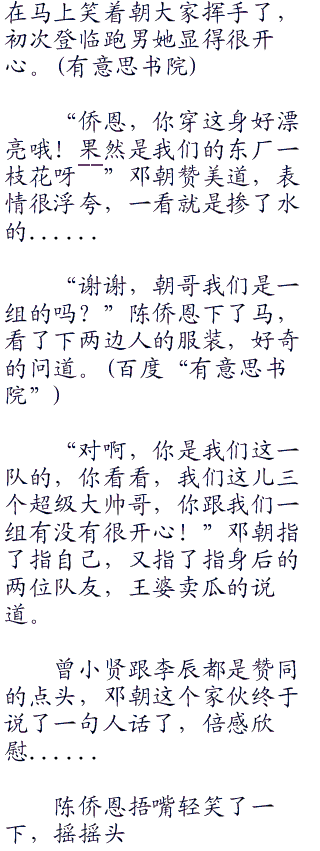 在马上笑着朝大家挥手了，
初次登临跑男她显得很开
心。(有意思书院)
“侨恩，你穿这身好漂
亮哦！果然是我们的东厂一
枝花呀——”邓朝赞美道，表
情很浮夸，一看就是掺了水
的......
“谢谢，朝哥我们是一
组的吗？”陈侨恩下了马，
看了下两边人的服装，好奇
的问道。(百度“有意思书
院”)
“对啊，你是我们这一
队的，你看看，我们这儿三
个超级大帅哥，你跟我们一
组有没有很开心！”邓朝指
了指自己，又指了指身后的
两位队友，王婆卖瓜的说
道。
曾小贤跟李辰都是赞同
的点头，邓朝这个家伙终于
说了一句人话了，倍感欣
慰......
陈侨恩捂嘴轻笑了一
下，摇摇头